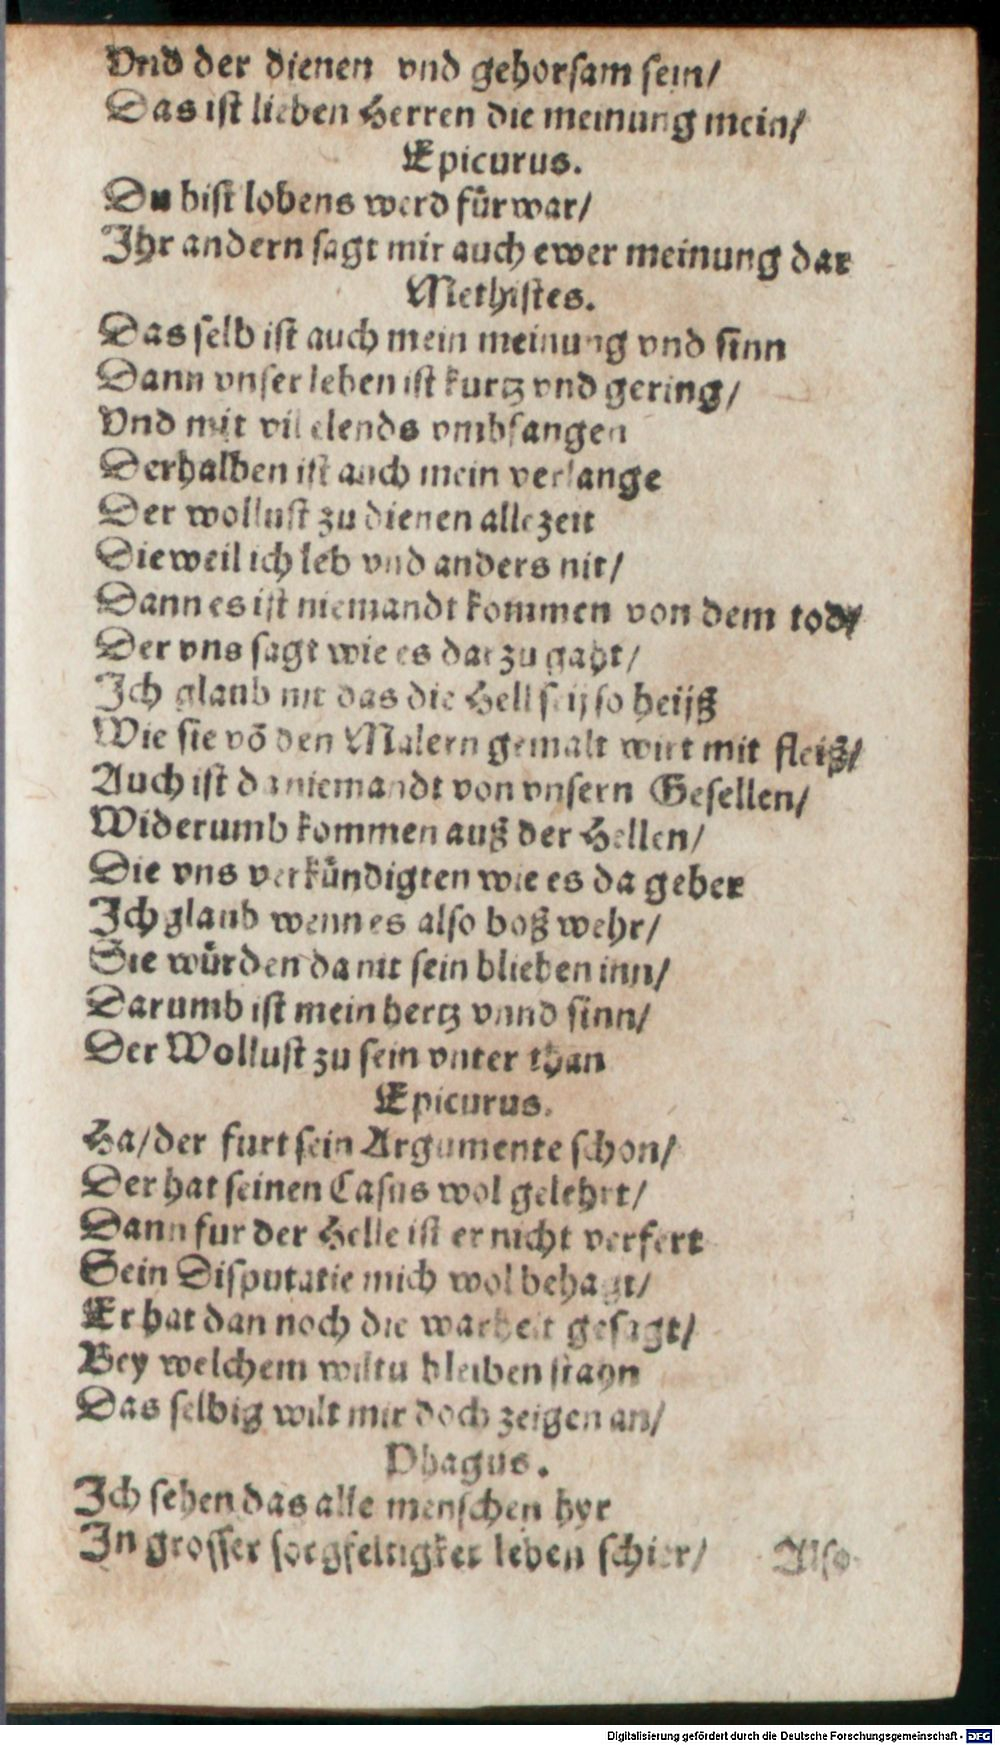 Vnd der dienen vnd gehorsam sein/
Das ist lieben Herren die meinung mein/
Epicurus.
Du bist lobens werd fürwar/
Ihr andern sagt mir auch ewer meinung dar
Methistes.
Das selb ist auch mein meinung vnd sinn
Dann vnser leben ist kurtz vnd gering/
Vnd mit vil elends vmbfangen
Derhalben ist auch mein verlange
Der wollust zu dienen alle zeit
Dieweil ich leb vnd anders nit/
Dann es ist niemandt kommen von dem todt/
Der vns sagt wie es dar zu gaht/
Ich glaub nit das die Hell seij so heijß
Wie sie võ den Malern gemalt wirt mit fleiß/
Auch ist da niemandt von vnsern Gesellen/
Widerumb kommen auß der Hellen/
Die vns verkündigten wie es da geher
Ich glaub wenn es also boß wehr/
Sie würden da nit sein blieben inn/
Darumb ist mein hertz vnnd sinn/
Der Wollust zu sein vnter than
Epicurus.
Ha/der furt sein Argumente schon/
Der hat seinen Casus wol gelehrt/
Dann fur der Helle ist er nicht verfert
Sein Disputatie mich wol behagt/
Er hat dan noch die warheit gesagt/
Bey welchem wiltu bleiben stahn
Das selbig wilt mir doch zeigen an/
Phagus.
Ich sehen das alle menschen hyr
In grosser sorgfeltigket leben schier/ Also
Digitalisierung gefördert durch die Deutsche Forschungsgemeinschaft - DFG